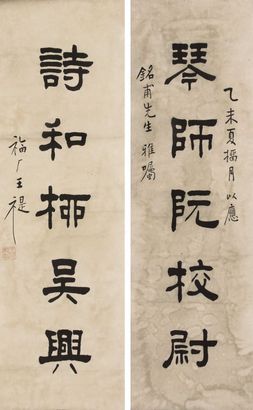 乙未夏榴月以應
琴師阮校尉
銘甫先生雅囑
詩和桺吳興
福厂王禔